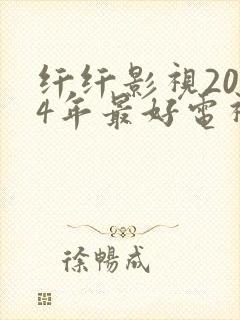 纤纤影視20
4年最好電視
徐暢成